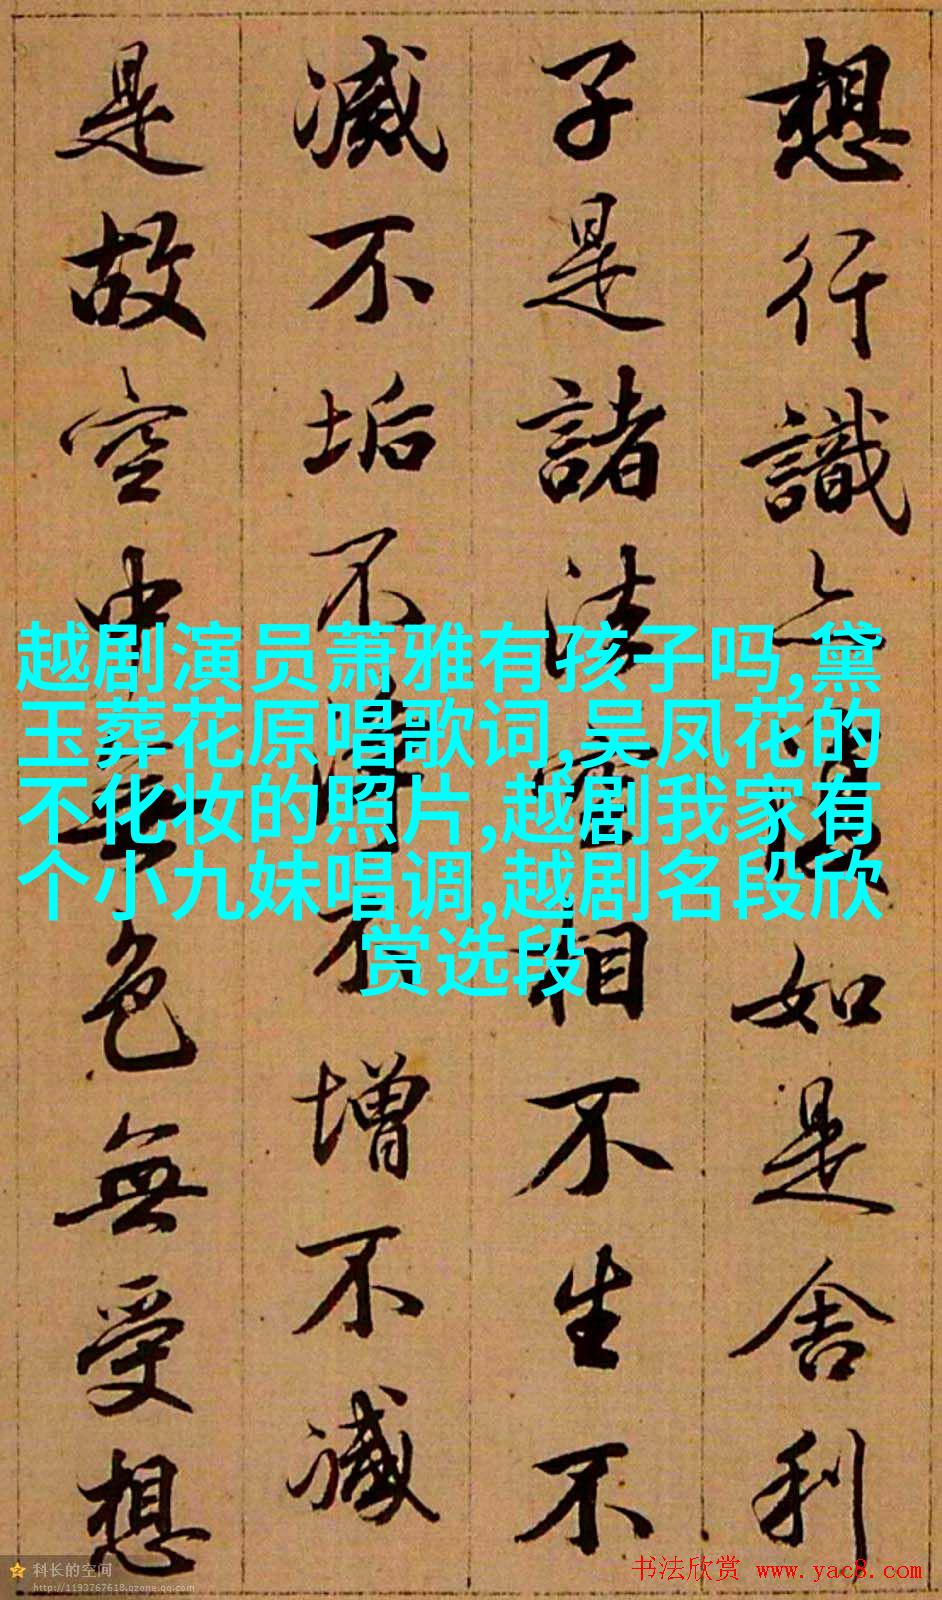 想行識亦復如是舍利
子是諸法空相不生不
滅不垢不淨不增不減
是故空中無色無受想
越剧演员萧雅有孩子吗,黛
玉葬花原唱歌词,吴凤花的
不化妆的照片,越剧我家有
个小九妹唱调,越剧名段欣
赏选段
科长的空间
http://1193767618.qzone.qq.com
书法欣赏 www.yac8.com